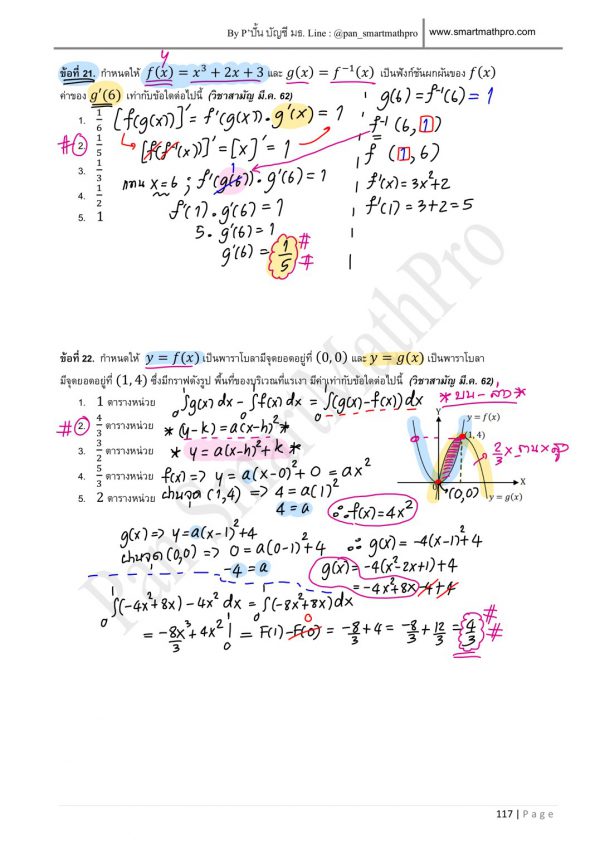 By P'ปั้น บัญชี มธ. Line : @pan_smartmathpro www.smartmathpro.com
y
ข้อที่ 21. กำหนดให้ f(x) = x³ + 2x + 3 และ g(x) = f⁻¹(x) เป็นฟังก์ชันผกผันของ f(x)
ค่าของ g′(6) เท่ากับข้อใดต่อไปนี้ (วิชาสามัญ มี.ค. 62)
1. 1/6
# 2. 1/5
3. 1/3
4. 1/2
5. 1
[f(g(x))]' = f'(g(x))·g'(x) = 1
[f(f⁻¹(x))]' = [x]' = 1
แทน x=6 ; f'(g(6))·g'(6) = 1
1
f'(1)·g'(6) = 1
5·g'(6) = 1
g'(6) = 1/5 # #
g(6) = f⁻¹(6) = 1
f⁻¹(6,1)
=
f (1,6)
f'(x) = 3x²+2
f'(1) = 3+2 = 5
ข้อที่ 22. กำหนดให้ y = f(x) เป็นพาราโบลามีจุดยอดอยู่ที่ (0, 0) และ y = g(x) เป็นพาราโบลา
มีจุดยอดอยู่ที่ (1, 4) ซึ่งมีกราฟดังรูป พื้นที่ของบริเวณที่แรเงา มีค่าเท่ากับข้อใดต่อไปนี้ (วิชาสามัญ มี.ค. 62)
1. 1 ตารางหน่วย
# 2. 4/3 ตารางหน่วย
3. 3/2 ตารางหน่วย
4. 5/3 ตารางหน่วย
5. 2 ตารางหน่วย
∫g(x) dx - ∫f(x) dx = ∫(g(x)-f(x)) dx
* (y-k) = a(x-h)² *
* y = a(x-h)²+k *
f(x) => y = a(x-0)²+0 = ax²
ผ่านจุด (1,4) => 4 = a(1)²
4 = a
∴ f(x) = 4x²
* บน - ล่าง *
Y
y = f(x)
(1, 4)
2/3 × ฐาน × สูง
0
X
(0,0)
y = g(x)
g(x) => y = a(x-1)²+4
ผ่านจุด (0,0) => 0 = a(0-1)²+4
-4 = a
∴ g(x) = -4(x-1)²+4
g(x) = -4(x²-2x+1)+4
= -4x²+8x-4+4
1
∫(-4x²+8x) - 4x² dx = ∫(-8x²+8x) dx
0
= -8x³/3 + 4x² |₀¹ = F(1) - F(0) = -8/3 + 4 = -8/3 + 12/3 = 4/3 # #
0
Pan SmartMathPro
117 | Page